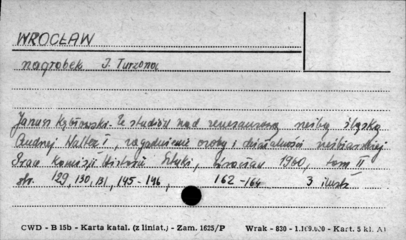 WROCŁAW
nagrobek J. Turzona
Janusz Kębłowski. Ze studiów nad renesansową rzeźbą śląską
Andrzej Walter I, zagadnienie osoby i działalności rzeźbiarskiej
Prac Komisji Historii Sztuki, Wrocław 1960, tom II
str. 129, 130, 131, 145-146, 162-164 3 ilustr.
CWD - B 15b - Karta katal. (z liniat.) - Zam. 1625/P Wrak - 838 - Kart. 5 kl. A1